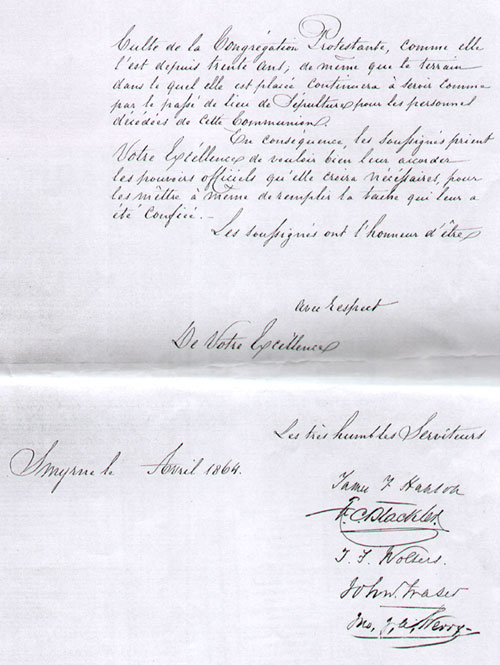 Culte de la Congrégation Protestante, comme elle
l'est depuis trente ans, de même que le terrain
dans le quel elle est placée continuera à servir comme
par le passé de lieu de Sépulture pour les personnes
décédées de cette Communion.
En conséquence, les soussignés prient
Votre Excéllence de vouloir bien leur accorder
les pouvoirs officiels qu'elle croira nécéssaires, pour
les mêttre à même de remplir la tache qui leur a
été Confiée. —
Les soussignés ont l'honneur d'être
avec respect
De Votre Excéllence
Les très humbles Serviteurs
Smyrne le Avril 1864.
James F Hanson
C Blackler
J. F. Wolters.
John Fraser
Jno,